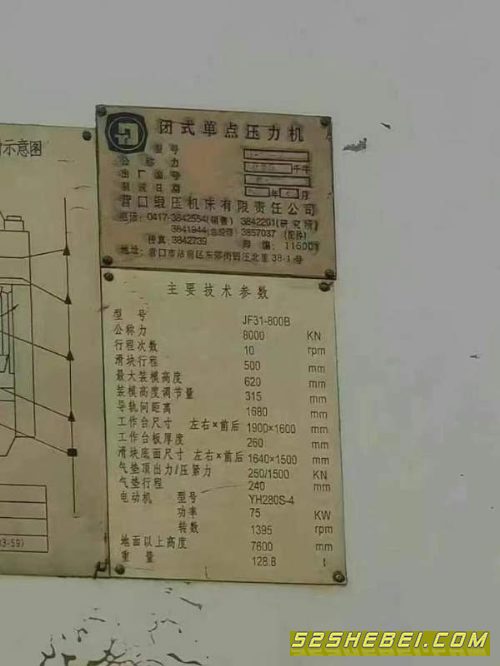 附示意图
闭式单点压力机
型号
公称力 千牛
出厂编号
制造日期 年 月
营口锻压机床有限责任公司
电话: 0417-3842554(销售) 3842201(研究所)
3841944(总经理) 3857037 (配件)
传真: 3842739 邮编: 115001
主要技术参数
型号 JF31-800B
公称力 8000 KN
行程次数 10 rpm
滑块行程 500 mm
最大装模高度 620 mm
装模高度调节量 315 mm
导轨间距离 1680 mm
工作台尺寸 左右×前后 1900×1600 mm
工作台板厚度 260 mm
滑块底面尺寸 左右×前后 1640×1500 mm
气垫顶出力/压紧力 250/1500 KN
气垫行程 240 mm
电动机 型号 YH280S-4
功率 75 KW
转数 1395 rpm
地面以上高度 7600 mm
重量 128.8 t
52SHEBEI.COM